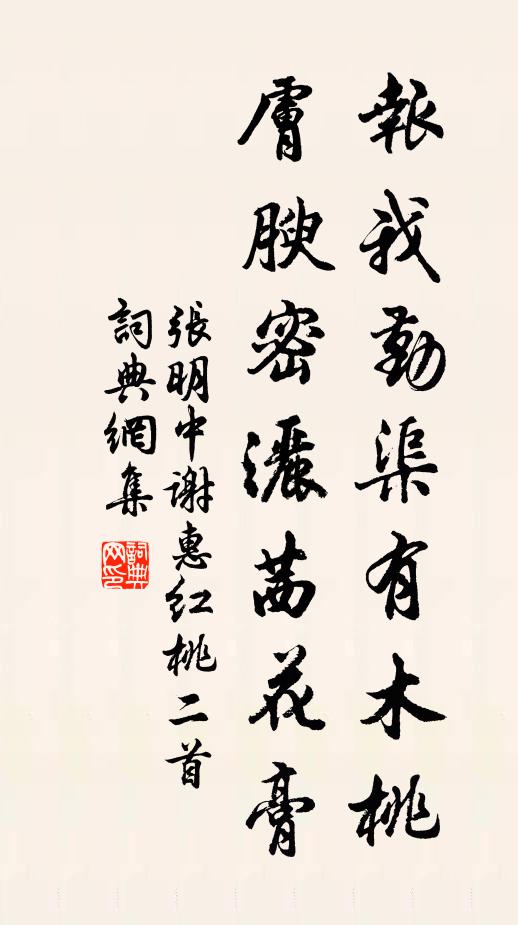 報我勤渠有木桃
膚腴密灑茜花膏
張明中谢惠红桃二首
詞典網集
詞典网印